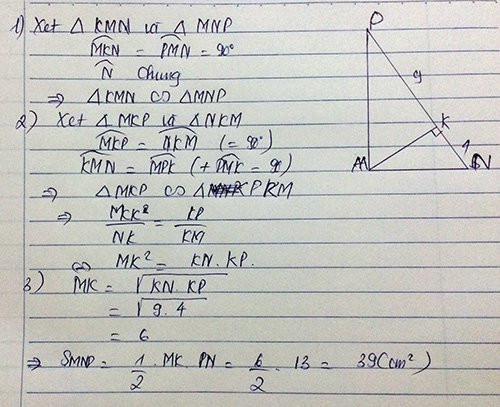 1) Xet △ KMN và △ MNP
MKN = PMN = 90°
N chung
=> △KMN ∽ △MNP
2) Xet △ MKP và △NKM
MKP = NKM (= 90°)
KMN = MPK (+ PMK = 90)
=> △MKP ∽ △
=> MK/NK = KP/KM
⇔ MK² = KN. KP.
3) MK = √KN. KP
= √9. 4
= 6
=> SMNP = 1/2 . MK. PN = 6/2 . 13 = 39(cm²)
P
9
K
4
M
N